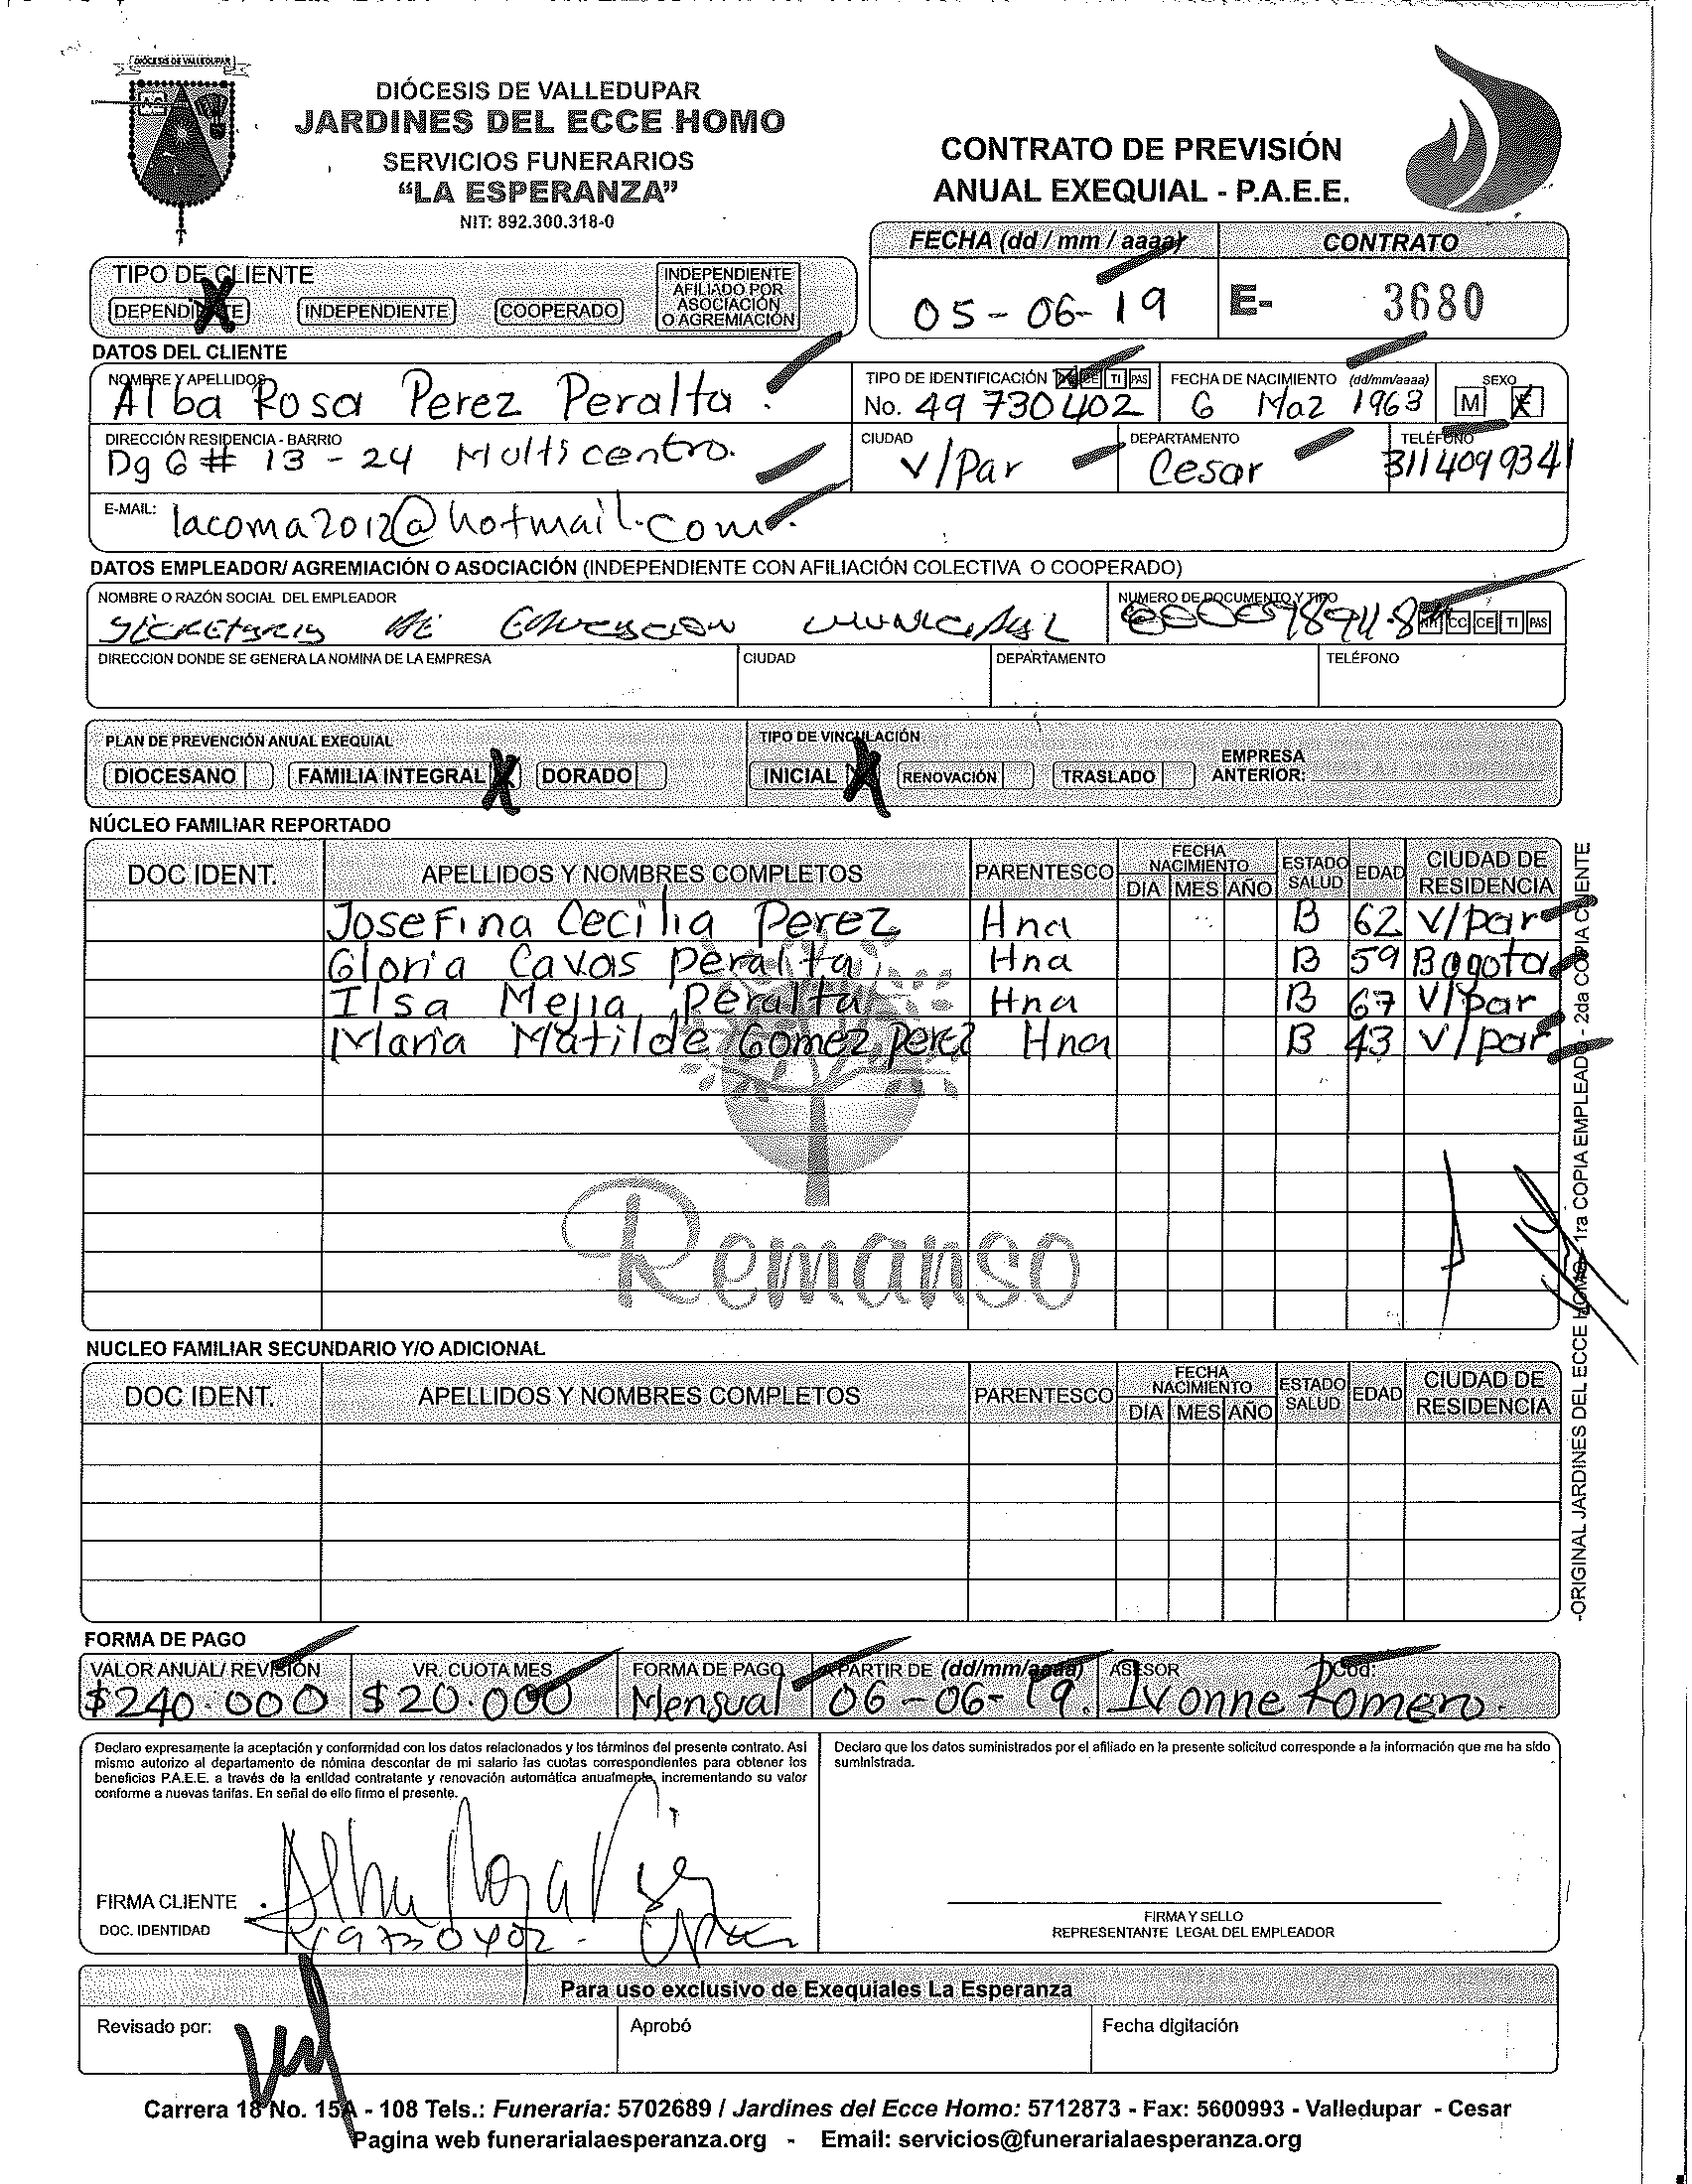 DIÓCESIS DE VALLEDUPAR
DIÓCESIS DE VALLEDUPAR
JARDINES DEL ECCE HOMO
SERVICIOS FUNERARIOS
"LA ESPERANZA"
NIT: 892.300.318-0
CONTRATO DE PREVISIÓN
ANUAL EXEQUIAL - P.A.E.E.
FECHA (dd / mm / aaaa) CONTRATO
05-06-19 E- 3680
TIPO DE CLIENTE
DEPENDIENTE X INDEPENDIENTE COOPERADO INDEPENDIENTE AFILIADO POR ASOCIACIÓN O AGREMIACIÓN
DATOS DEL CLIENTE
NOMBRE Y APELLIDOS TIPO DE IDENTIFICACIÓN CE TI PAS FECHA DE NACIMIENTO (dd/mm/aaaa) SEXO
Alba Rosa Perez Peralta. No. 49730402 6 Maz 1963 M X
DIRECCIÓN RESIDENCIA - BARRIO CIUDAD DEPARTAMENTO TELÉFONO
Dg 6 # 13 - 24 Multicentro. V/Par Cesar 3114099341
E-MAIL: lacoma2012@hotmail.com.
DATOS EMPLEADOR/ AGREMIACIÓN O ASOCIACIÓN (INDEPENDIENTE CON AFILIACIÓN COLECTIVA O COOPERADO)
NOMBRE O RAZÓN SOCIAL DEL EMPLEADOR NUMERO DE DOCUMENTO Y TIPO
Secretaria de Educacion Municipal CC CE TI PAS
DIRECCION DONDE SE GENERA LA NOMINA DE LA EMPRESA CIUDAD DEPARTAMENTO TELÉFONO
PLAN DE PREVENCIÓN ANUAL EXEQUIAL TIPO DE VINCULACIÓN
DIOCESANO FAMILIA INTEGRAL X DORADO INICIAL X RENOVACIÓN TRASLADO EMPRESA ANTERIOR:
NÚCLEO FAMILIAR REPORTADO
DOC IDENT. APELLIDOS Y NOMBRES COMPLETOS PARENTESCO FECHA NACIMIENTO DIA MES AÑO ESTADO SALUD EDAD CIUDAD DE RESIDENCIA
Josefina Cecilia Perez Hna B 62 V/par
Gloria Cavas Peralta Hna B 59 Bogota
Ilsa Mejia Peralta Hna B 67 V/par
Maria Matilde Gomez Perez Hna B 43 V/par
Remanso
NUCLEO FAMILIAR SECUNDARIO Y/O ADICIONAL
DOC IDENT. APELLIDOS Y NOMBRES COMPLETOS PARENTESCO FECHA NACIMIENTO DIA MES AÑO ESTADO SALUD EDAD CIUDAD DE RESIDENCIA
-ORIGINAL JARDINES DEL ECCE HOMO - 1ra COPIA EMPLEADO - 2da COPIA CLIENTE
FORMA DE PAGO
VALOR ANUAL/ REVISIÓN VR. CUOTA MES FORMA DE PAGO A PARTIR DE (dd/mm/aaaa) ASESOR Cod:
$240.000 $20.000 Mensual 06-06-19. Ivonne Romero.
Declaro expresamente la aceptación y conformidad con los datos relacionados y los términos del presente contrato. Asi
mismo autorizo al departamento de nómina descontar de mi salario las cuotas correspondientes para obtener los
beneficios P.A.E.E. a través de la entidad contratante y renovación automática anualmente, incrementando su valor
conforme a nuevas tarifas. En señal de ello firmo el presente.
Declaro que los datos suministrados por el afiliado en la presente solicitud corresponde a la información que me ha sido
suministrada.
FIRMA CLIENTE Alba Rosa Perez
DOC. IDENTIDAD 49730402-
FIRMA Y SELLO
REPRESENTANTE LEGAL DEL EMPLEADOR
Para uso exclusivo de Exequiales La Esperanza
Revisado por: Aprobó Fecha digitación
Carrera 18 No. 15A - 108 Tels.: Funeraria: 5702689 / Jardines del Ecce Homo: 5712873 - Fax: 5600993 - Valledupar - Cesar
Pagina web funerarialaesperanza.org - Email: servicios@funerarialaesperanza.org